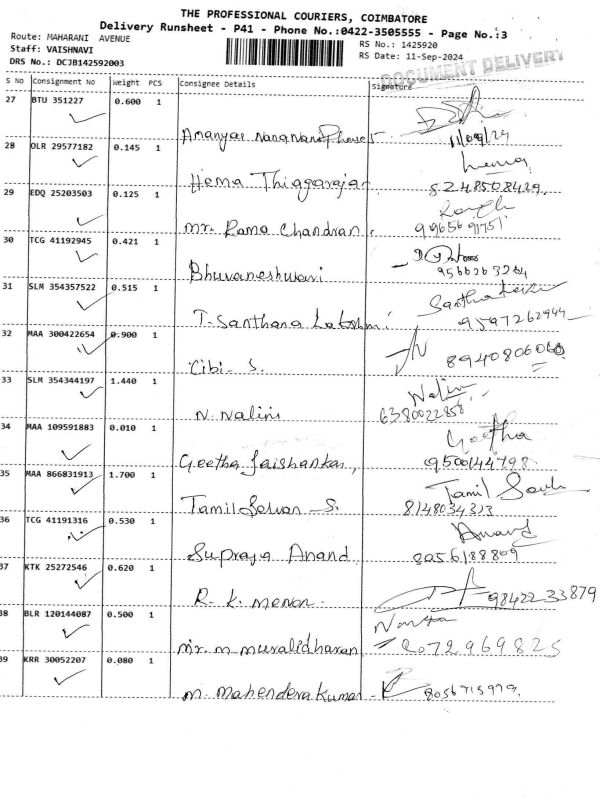 THE PROFESSIONAL COURIERS, COIMBATORE
Delivery Runsheet - P41 - Phone No.:0422-3505555 - Page No.:3
Route: MAHARANI AVENUE
RS No.: 1425920
Staff: VAISHNAVI
RS Date: 11-Sep-2024
DRS No.: DCJB142592003
DOCUMENT DELIVERY
S No Consignment No Weight PCS Consignee Details Signature
27 BTU 351227 0.600 1
11/09/24
28 OLR 29577182 0.145 1
Hema
Hema Thiagarajar
8248508429
29 EDQ 25203503 0.125 1
Mr. Rama Chandran.
9965691751
30 TCG 41192945 0.421 1
Bhuvaneshwari
9566263264
31 SLM 354357522 0.515 1
Santha Lakshmi
T. Santhana Lakshmi
9597262944
32 MAA 300422654 0.900 1
8940806060
Cibi. S.
33 SLM 354344197 1.440 1
Nalini
N. Nalini
6380022858
34 MAA 109591883 0.010 1
Geetha
Geetha Jaishankar,
9500144798
35 MAA 866831913 1.700 1
Tamil Selvi
Tamil Selvan S.
8148034323
36 TCG 41191316 0.530 1
Anand
Supraja Anand
8056188809
37 KTK 25272546 0.620 1
R. K. menon.
9842233879
38 BLR 120144087 0.500 1
Mr. M. Muralidharan
8072969825
39 KRR 30052207 0.080 1
M. Mahendera kumar
8056715979